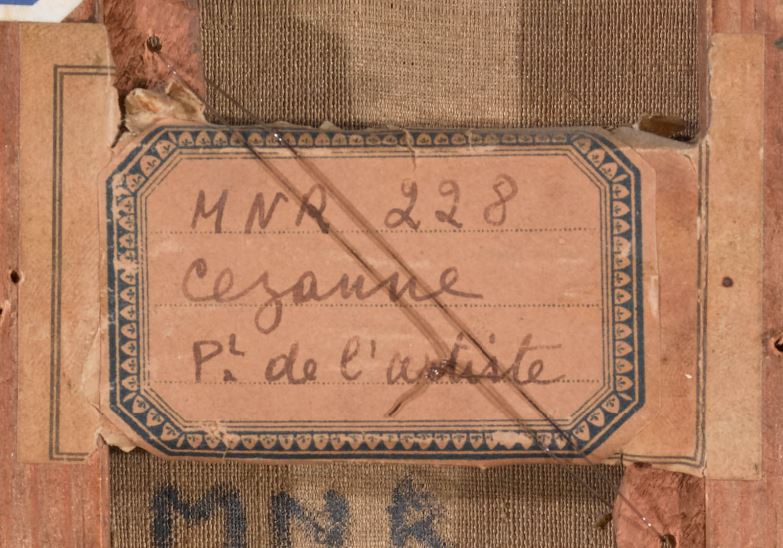 MNR 228
Cezanne
Pt. de l'artiste
MNR